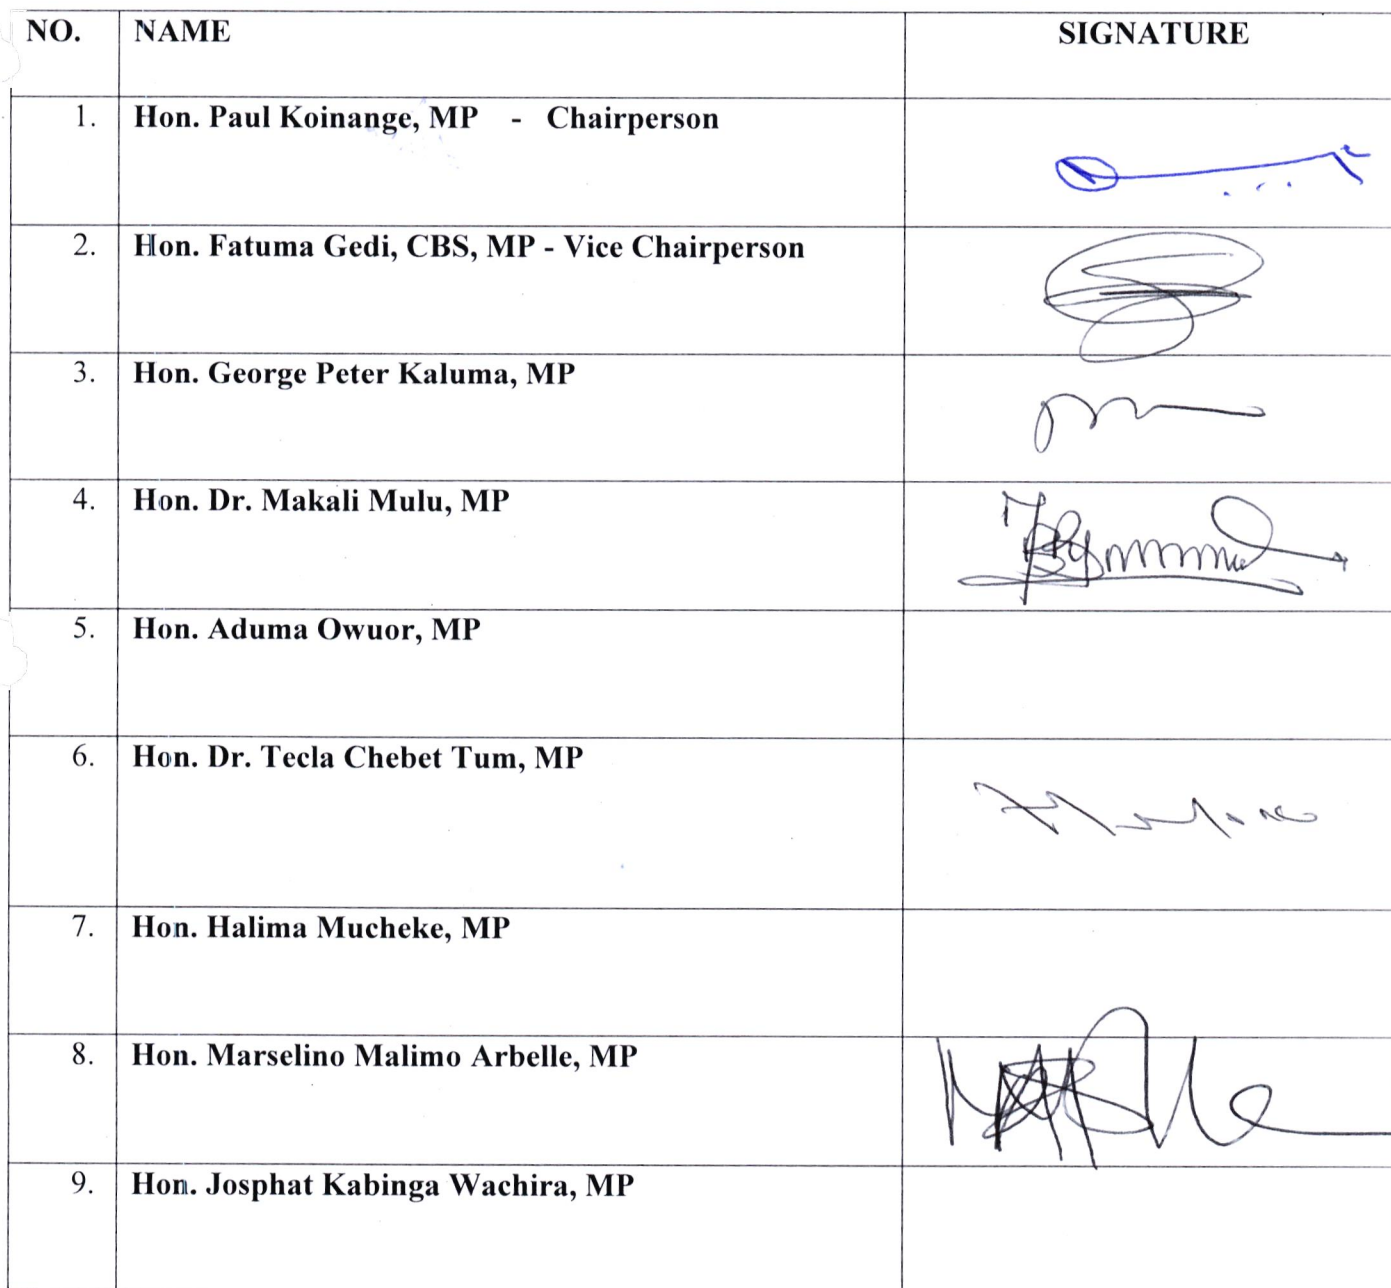 NO. NAME SIGNATURE
1. Hon. Paul Koinange, MP - Chairperson
2. Hon. Fatuma Gedi, CBS, MP - Vice Chairperson
3. Hon. George Peter Kaluma, MP
4. Hon. Dr. Makali Mulu, MP
5. Hon. Aduma Owuor, MP
6. Hon. Dr. Tecla Chebet Tum, MP
7. Hon. Halima Mucheke, MP
8. Hon. Marselino Malimo Arbelle, MP
9. Hon. Josphat Kabinga Wachira, MP